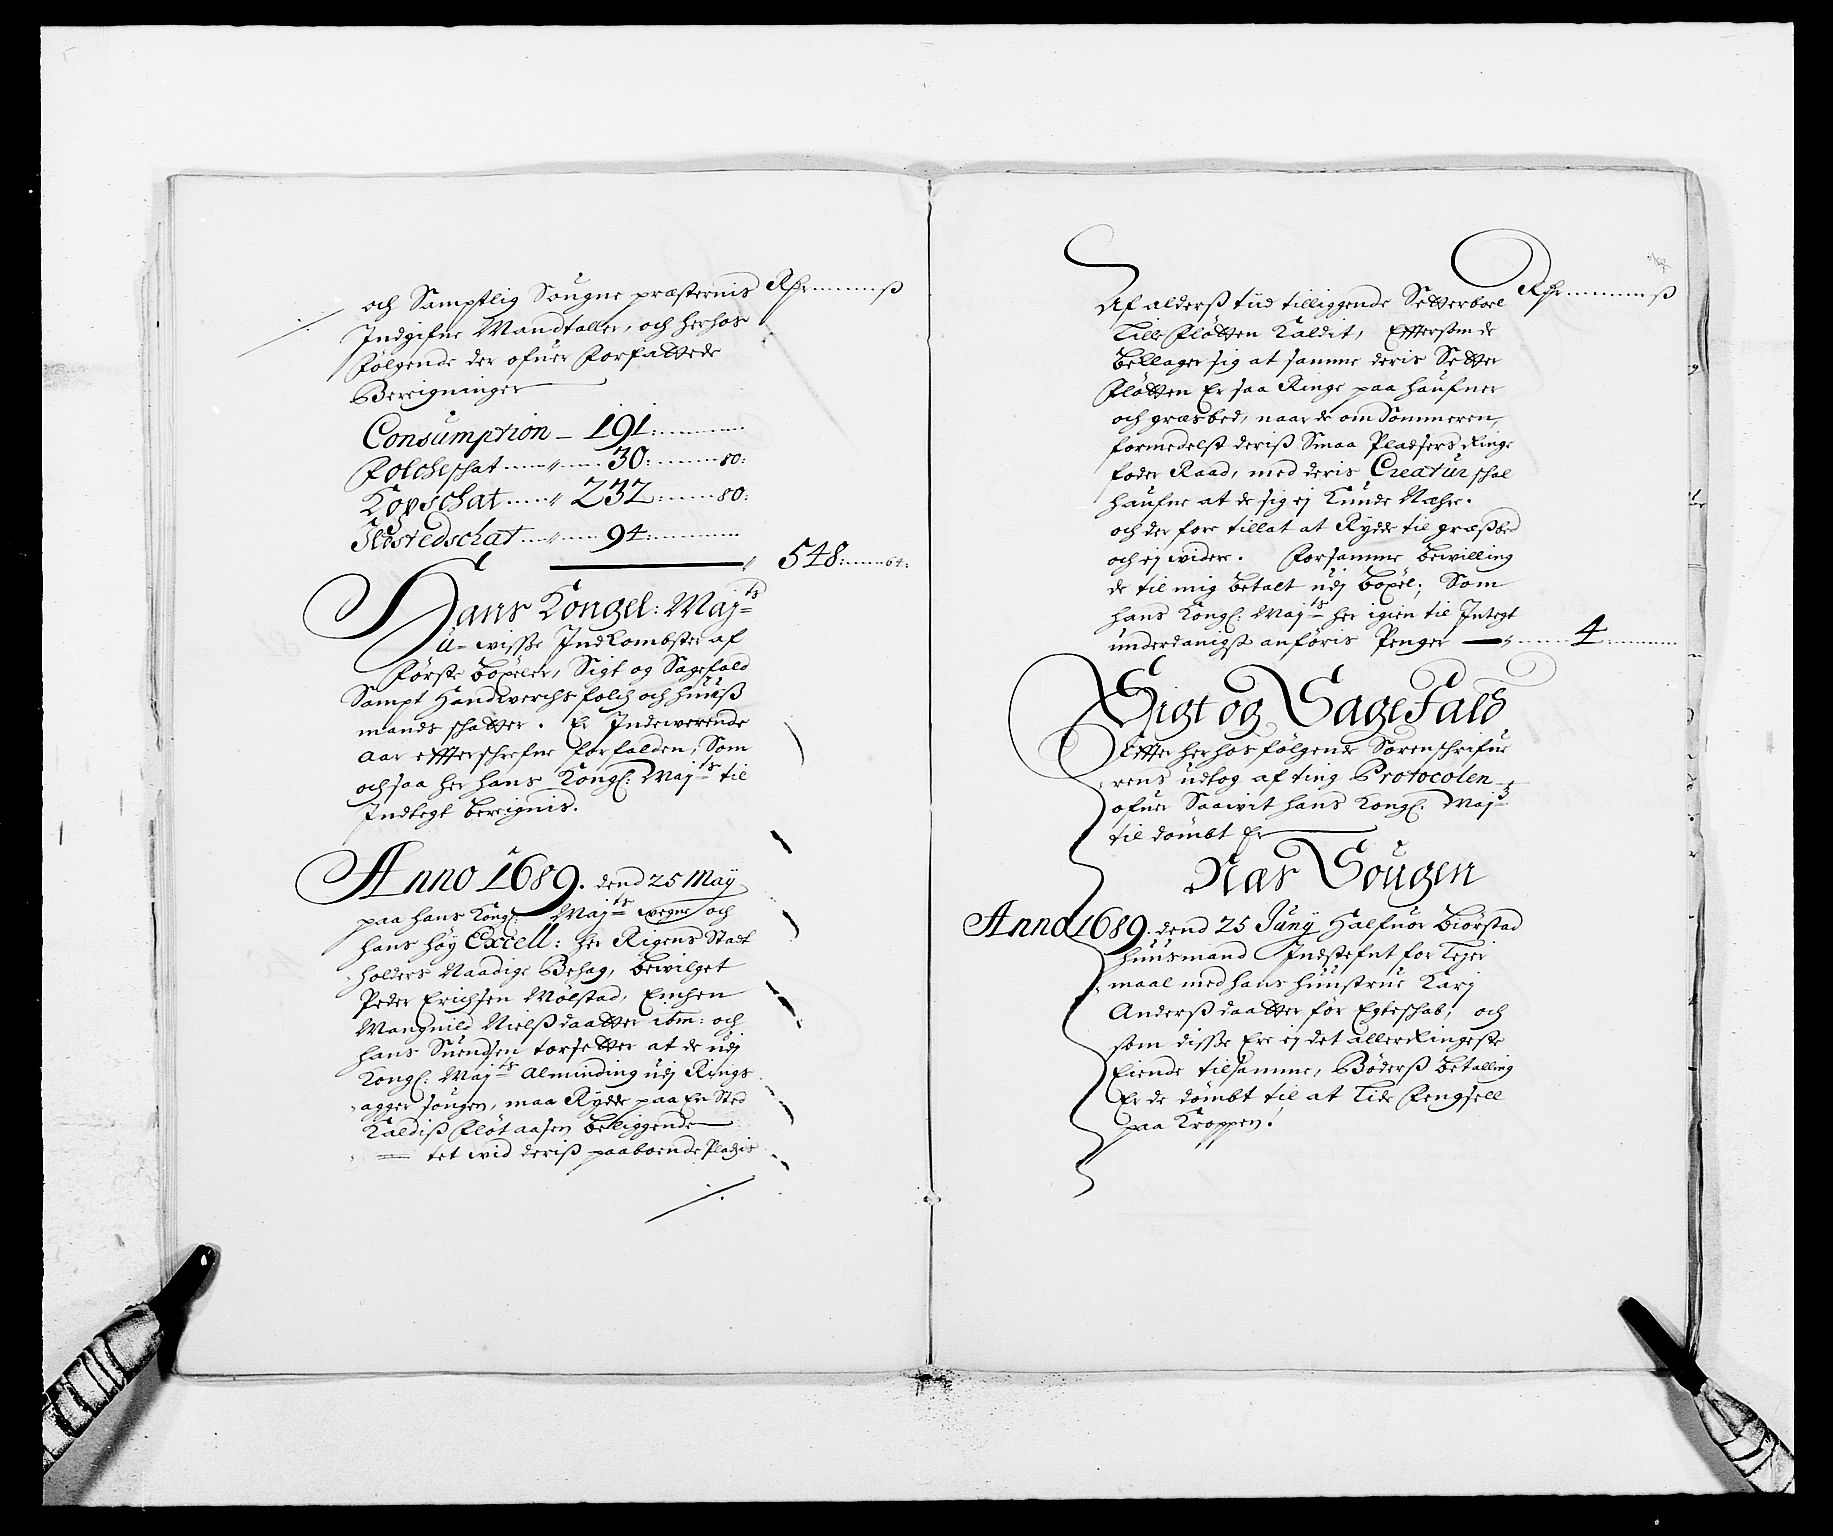 och Samptlig Sougne præsternis Rhr ß
Indgifne Mandtaller, och herhos
følgende der ofuer forfattede
Beregninger
Consumption – 191:
Folcheschat 30: 80:
Kopschat 232: 80:
Ildstedschat 94:
548: 64:
Hans Kongel: Majts
U-wisse Indkombster af
Første boxeler, Sigt og Sagefald
Sampt Handwerchs folch och huuß
mands schatter. Er Indewerende
aar effterschrefne forfalden, Som
och saa her hans Kongl: Majts til
Indtegt beregnis.
Anno 1689. dend 25 Maÿ
paa hans Kongl: Majts wegne och
hans høÿ Excell: her Rigens Stadt
holders Naadige Behag, bewilget
Peder Erichsen Mølstad, Enchen
Mangnild Nielßdaatter ibm: och
hans Suendsen torsetter at de udj
Kongl: Majts Alminding udj Rings
agger sougen, maa Rydde paa En Sted
Kaldiß Fløtaasen belliggende
tet wid deriß paaboende Pladzis
Rhr ß
Af alderß tiid tilliggende Setterboel
Lille Fløtten Kaldet, Effterssom de
bellager sig at samme deris Setter
Fløtten Er saa Ringe paa haufner
och græsbed, naar de om Sommeren,
formedelst deriß Smaa Pladsers Ringe
foder Raad, med deris Creatur schal
haufne at de sig ej Kunde Næhre.
och der fore tillat at Rydde til græßbed
och ej widere. For samme bewilling
de til mig betalt udj boxel; Som
hans Kongl: Majts her igien til Integt
underdanigst anføris Penger 4
Sigt og Sagefald
Effter herhos følgende Sorenschrifue
rens udtog af ting Protocolen
ofuer Saawit hans Kongl: Majt
til dømbt Er
Næs Sougen
Anno 1689. dend 25 Junÿ Halfuor Biørstad
huusmand Indstefnt for Leyer
maal med hans huustrue Karj
Anderßdaatter før Egteschab; och
som disse Ere ej det allerRingeste
Eiende tilsamme, Bøderß betalling
Er de dømbt til at Lide Fengsell
paa Kroppen.